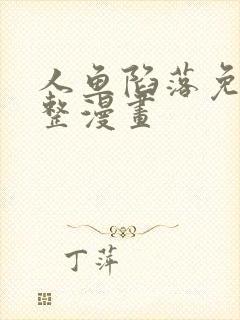 人鱼陷落免
整漫畫
丁萍